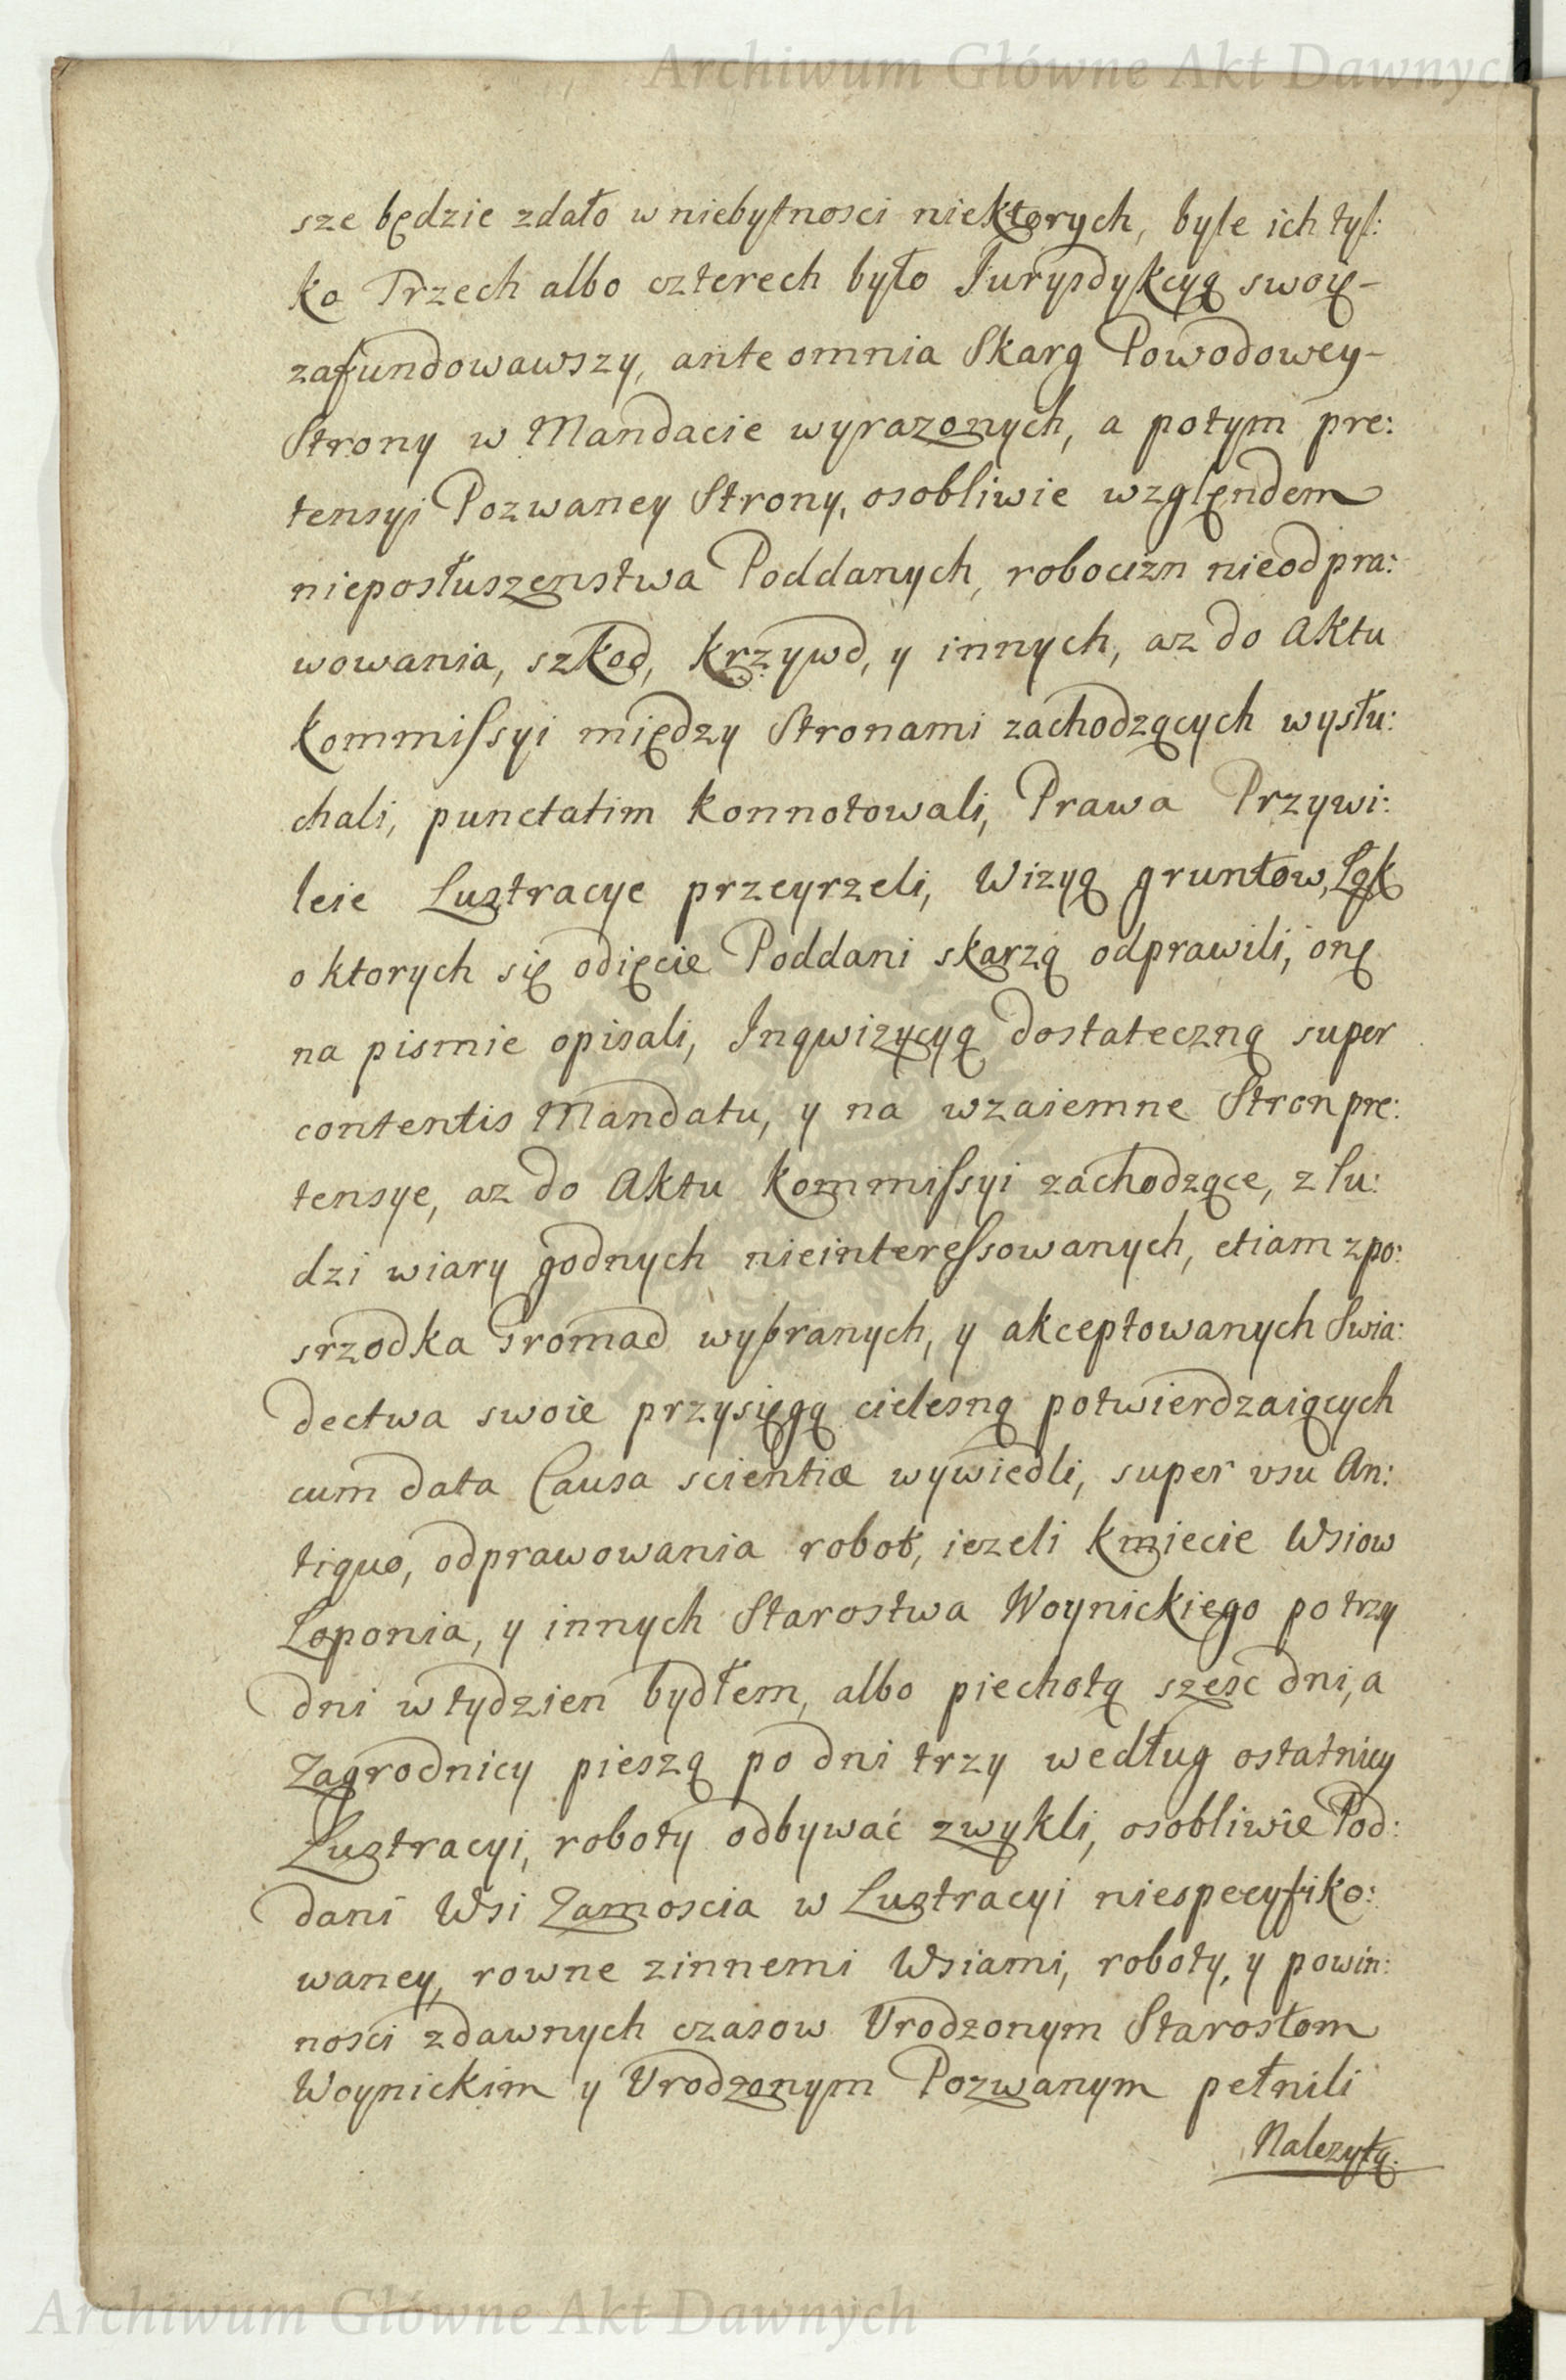 Archiwum Główne Akt Dawnych
sze będzie zdało w niebytnosci niektorych, byle ich tyl:
ko Trzech albo czterech było Jurysdykcyą swoię-
zafundowawszy, ante omnia Skarg Powodowey-
Strony w Mandacie wyrazonych, a potym pre:
tensyi Pozwaney Strony, osobliwie wzglęndem
nieposłuszenstwa Poddanych, robocizn nieodpra:
wowania, szkod, krzywd, y innych, az do Aktu
kommiſsyi między Stronami zachodzących wysłu:
chali, punctatim konnotowali, Prawa Przywi:
leie Lustracye przeyrzeli, Wizyą gruntow, Łąk
o ktorych się odięcie Poddani skarzą odprawili, onę
na pismie opisali, Inqwizycyą dostateczną super
contentis Mandatu, y na wzaiemne Stron pre:
tensye, az do Aktu kommiſsyi zachodzące, z lu:
dzi wiary godnych nieintereſsowanych, etiam z po:
srzodka Gromad wybranych, y akceptowanych Swia:
dectwa swoie przysięgą cielesną potwierdzaiących
cum data Causa scientiæ wywiedli, super vsu An:
tiquo, odprawowania robot, iezeli kmiecie Wsiow
Łoponia, y innych Starostwa Woynickiego po trzy
dni w tydzien bydłem, albo piechotą szesc dni, a
Zagrodnicy pieszą po dni trzy według ostatniey
Lustracyi, roboty odbywać zwykli, osobliwie Pod:
dani Wsi Zamoscia w Lustracyi niespecyfiko:
waney, rowne z innemi Wsiami, roboty, y powin:
nosci z dawnych czasow Vrodzonym Starostom
Woynickim y Vrodzonym Pozwanym pełnili
Nalezytą.
Archiwum Główne Akt Dawnych